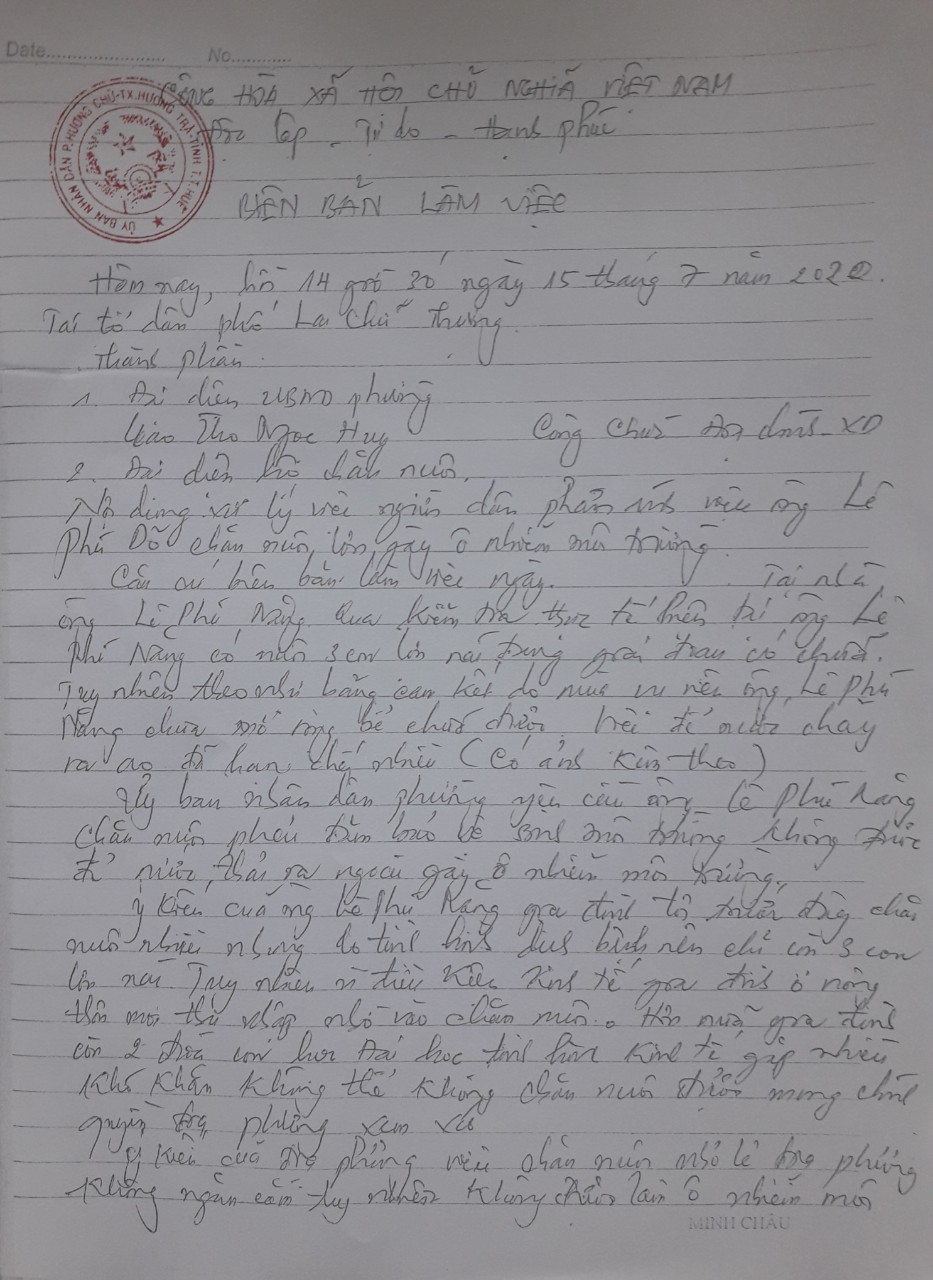 Date........................ No............
CỘNG HÒA XÃ HỘI CHỦ NGHĨA VIỆT NAM
Độc lập - Tự do - Hạnh phúc
ỦY BAN NHÂN DÂN P.HƯƠNG CHỮ-TX.HƯƠNG TRÀ-TỈNH T.T.HUẾ
BIÊN BẢN LÀM VIỆC
Hôm nay, hồi 14 giờ 30 ngày 15 tháng 7 năm 2020.
Tại tổ dân phố La Chữ Thượng.
Thành phần.
1. Đại diện UBND phường
Ngọc Huy Công Chức Địa chính - XD
2. Đại diện hộ chăn nuôi.
Nội dung xử lý việc người dân phản ánh việc ông Lê
Phú Dỗ chăn nuôi, lợn, gây ô nhiễm môi trường.
Căn cứ biên bản làm việc ngày. Tại nhà
ông Lê Phú Nẵng. Qua kiểm tra thực tế hiện tại ông Lê
Phú Nẵng có nuôi 3 con lợn nái đang giai đoạn có chửa.
Tuy nhiên theo như bảng cam kết do mùa vụ nên ông Lê Phú
Nẵng chưa mở rộng bể chứa được. Việc để nước chảy
ra ao đã hạn chế nhiều (Có ảnh kèm theo)
Ủy ban nhân dân phường yêu cầu ông Lê Phú Nẵng
chăn nuôi phải đảm bảo vệ sinh môi trường không được
để nước thải ra ngoài gây ô nhiễm môi trường.
Ý kiến của ông Lê Phú Nẵng gia đình tôi trước đây chăn
nuôi nhiều nhưng do tình hình dịch bệnh nên chỉ còn 3 con
lợn nái. Tuy nhiên vì điều kiện kinh tế gia đình ở nông
thôn mọi thu nhập nhờ vào chăn nuôi. Hơn nữa gia đình
còn 2 đứa con học Đại học tình hình kinh tế gặp nhiều
khó khăn không thể không chăn nuôi được mong chính
quyền địa phương xem xét
Ý kiến của địa phương việc chăn nuôi nhỏ lẻ địa phương
không ngăn cấm tuy nhiên không được làm ô nhiễm môi
MINH CHÂU